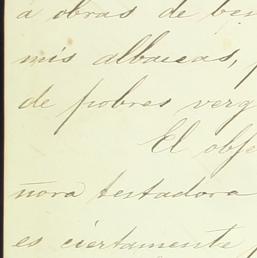 á obras de ben
mis albaceas,
de pobres verg
El obje
ñora testadora
es ciertamente